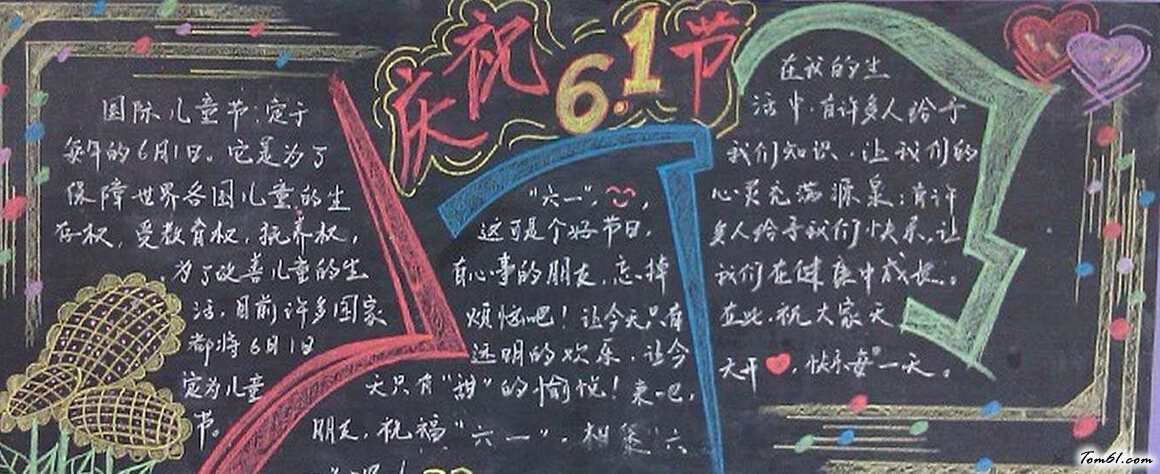 庆祝6.1节
国际儿童节,定于
每年的6月1日。它是为了
保障世界各国儿童的生
存权,受教育权,抚养权,
为了改善儿童的生
活,目前许多国家
都将6月1日
定为儿童
节。
"六一",
这可是个好节日,
有心事的朋友,忘掉
烦恼吧!让今天只有
透明的欢乐,让今
天只有"甜"的愉悦!来吧,
朋友,祝福"六一",相聚六
在我的生
活中,有许多人给予
我们知识,让我们的
心灵充满源泉;有许
多人给予我们快乐,让
我们在健康中成长。
在此,祝大家天
天开,快乐每一天。
Tom61.com